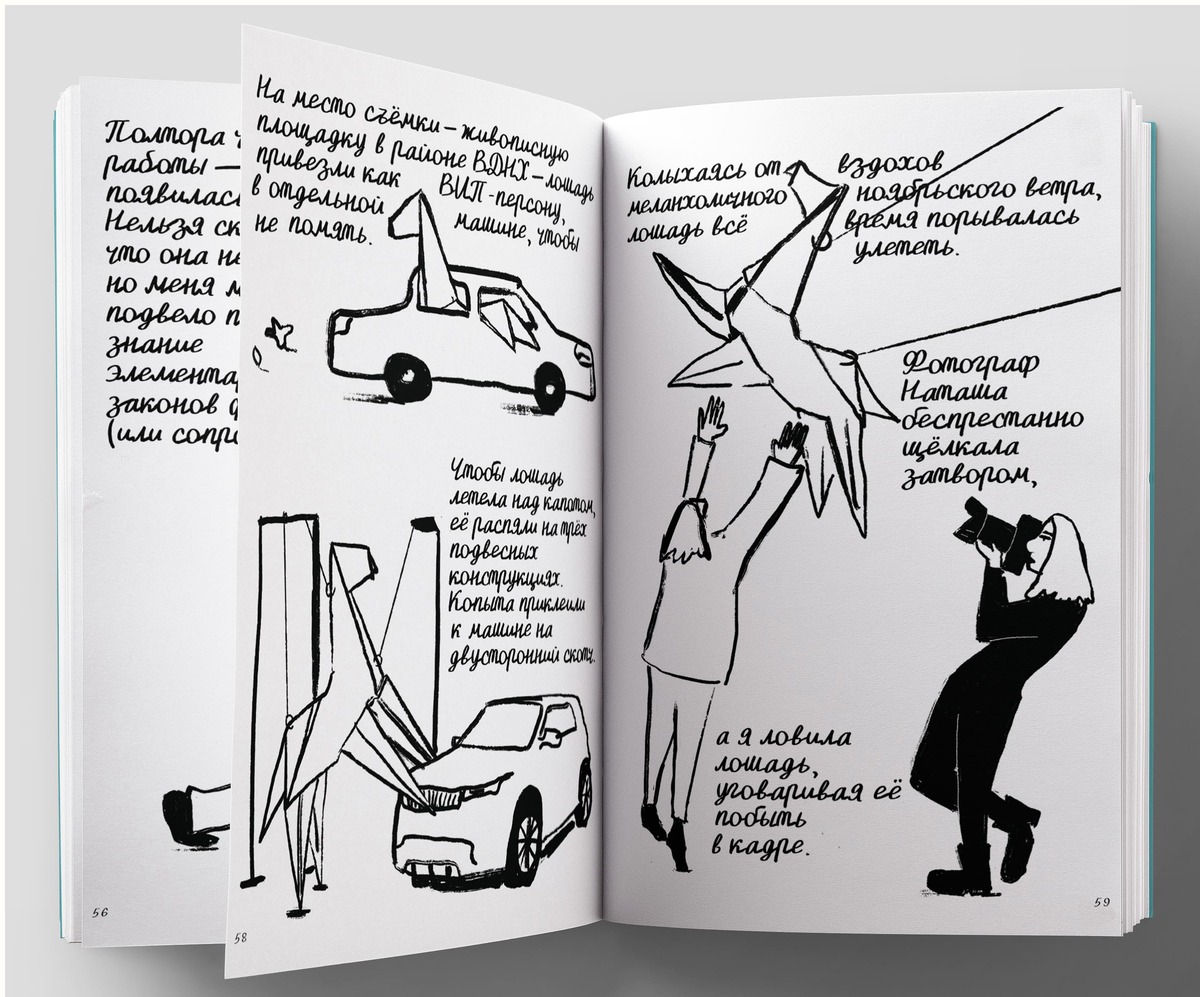 Полтора
работы —
появилась
Нельзя
что она
но меня
подвело
знание
законов
(или
56
На место съёмки — живописную
площадку в районе ВДНХ — лошадь
привезли как ВИП-персону,
в отдельной машине, чтобы
не помять.
Чтобы лошадь
летела над капотом,
её распяли на трёх
подвесных
конструкциях.
Копыта приклеили
к машине на
двусторонний скотч.
58
Колыхаясь от вздохов
меланхоличного ноябрьского ветра,
лошадь всё время порывалась
улететь.
Фотограф
Наташа
беспрестанно
щёлкала
затвором,
а я ловила
лошадь,
уговаривая её
побыть
в кадре.
59